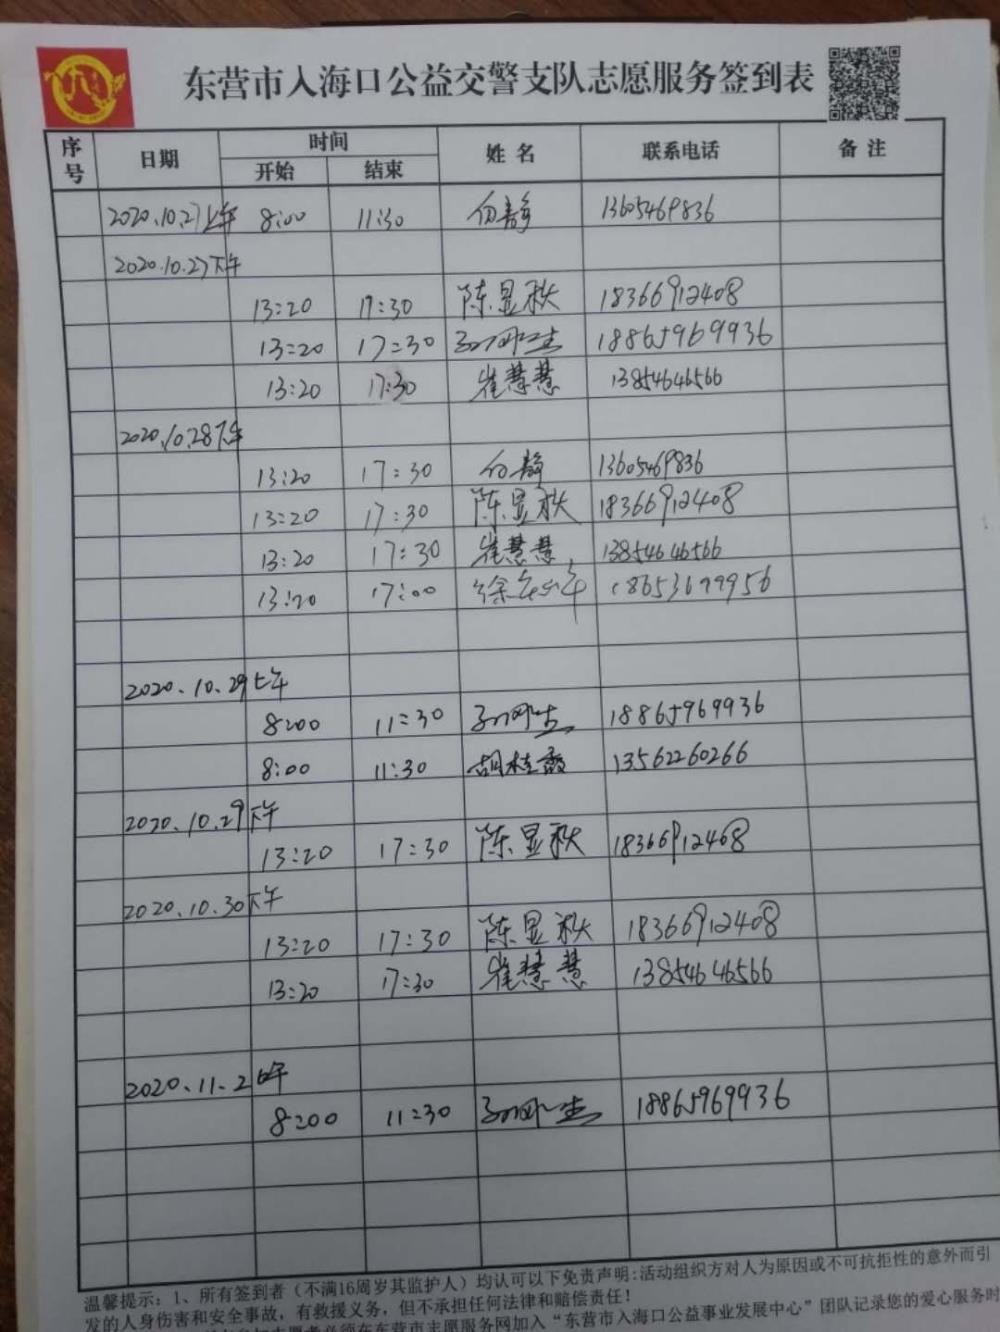 东营市入海口公益交警支队志愿服务签到表
序号 日期 时间 姓名 联系电话 备注
开始 结束
2020.10.27上午 8:00 11:30 白静 13605469836
2020.10.27下午
13:20 17:30 陈显秋 18366912408
13:20 17:30 18865969936
13:20 17:30 崔慧慧 13854646566
2020.10.28下午
13:20 17:30 白静 13605469836
13:20 17:30 陈显秋 18366912408
13:20 17:30 崔慧慧 13854646566
13:20 17:00 徐 18653699956
2020.10.29上午
8:00 11:30 18865969936
8:00 11:30 胡桂霞 13562260266
2020.10.29下午
13:20 17:30 陈显秋 18366912408
2020.10.30下午
13:20 17:30 陈显秋 18366912408
13:20 17:30 崔慧慧 13854646566
2020.11.2上午
8:00 11:30 18865969936
温馨提示:1、所有签到者(不满16周岁其监护人)均认可以下免责声明:活动组织方对人为原因或不可抗拒性的意外而引
发的人身伤害和安全事故,有救援义务,但不承担任何法律和赔偿责任!
在东营市志愿服务网加入“东营市入海口公益事业发展中心”团队记录您的爱心服务时